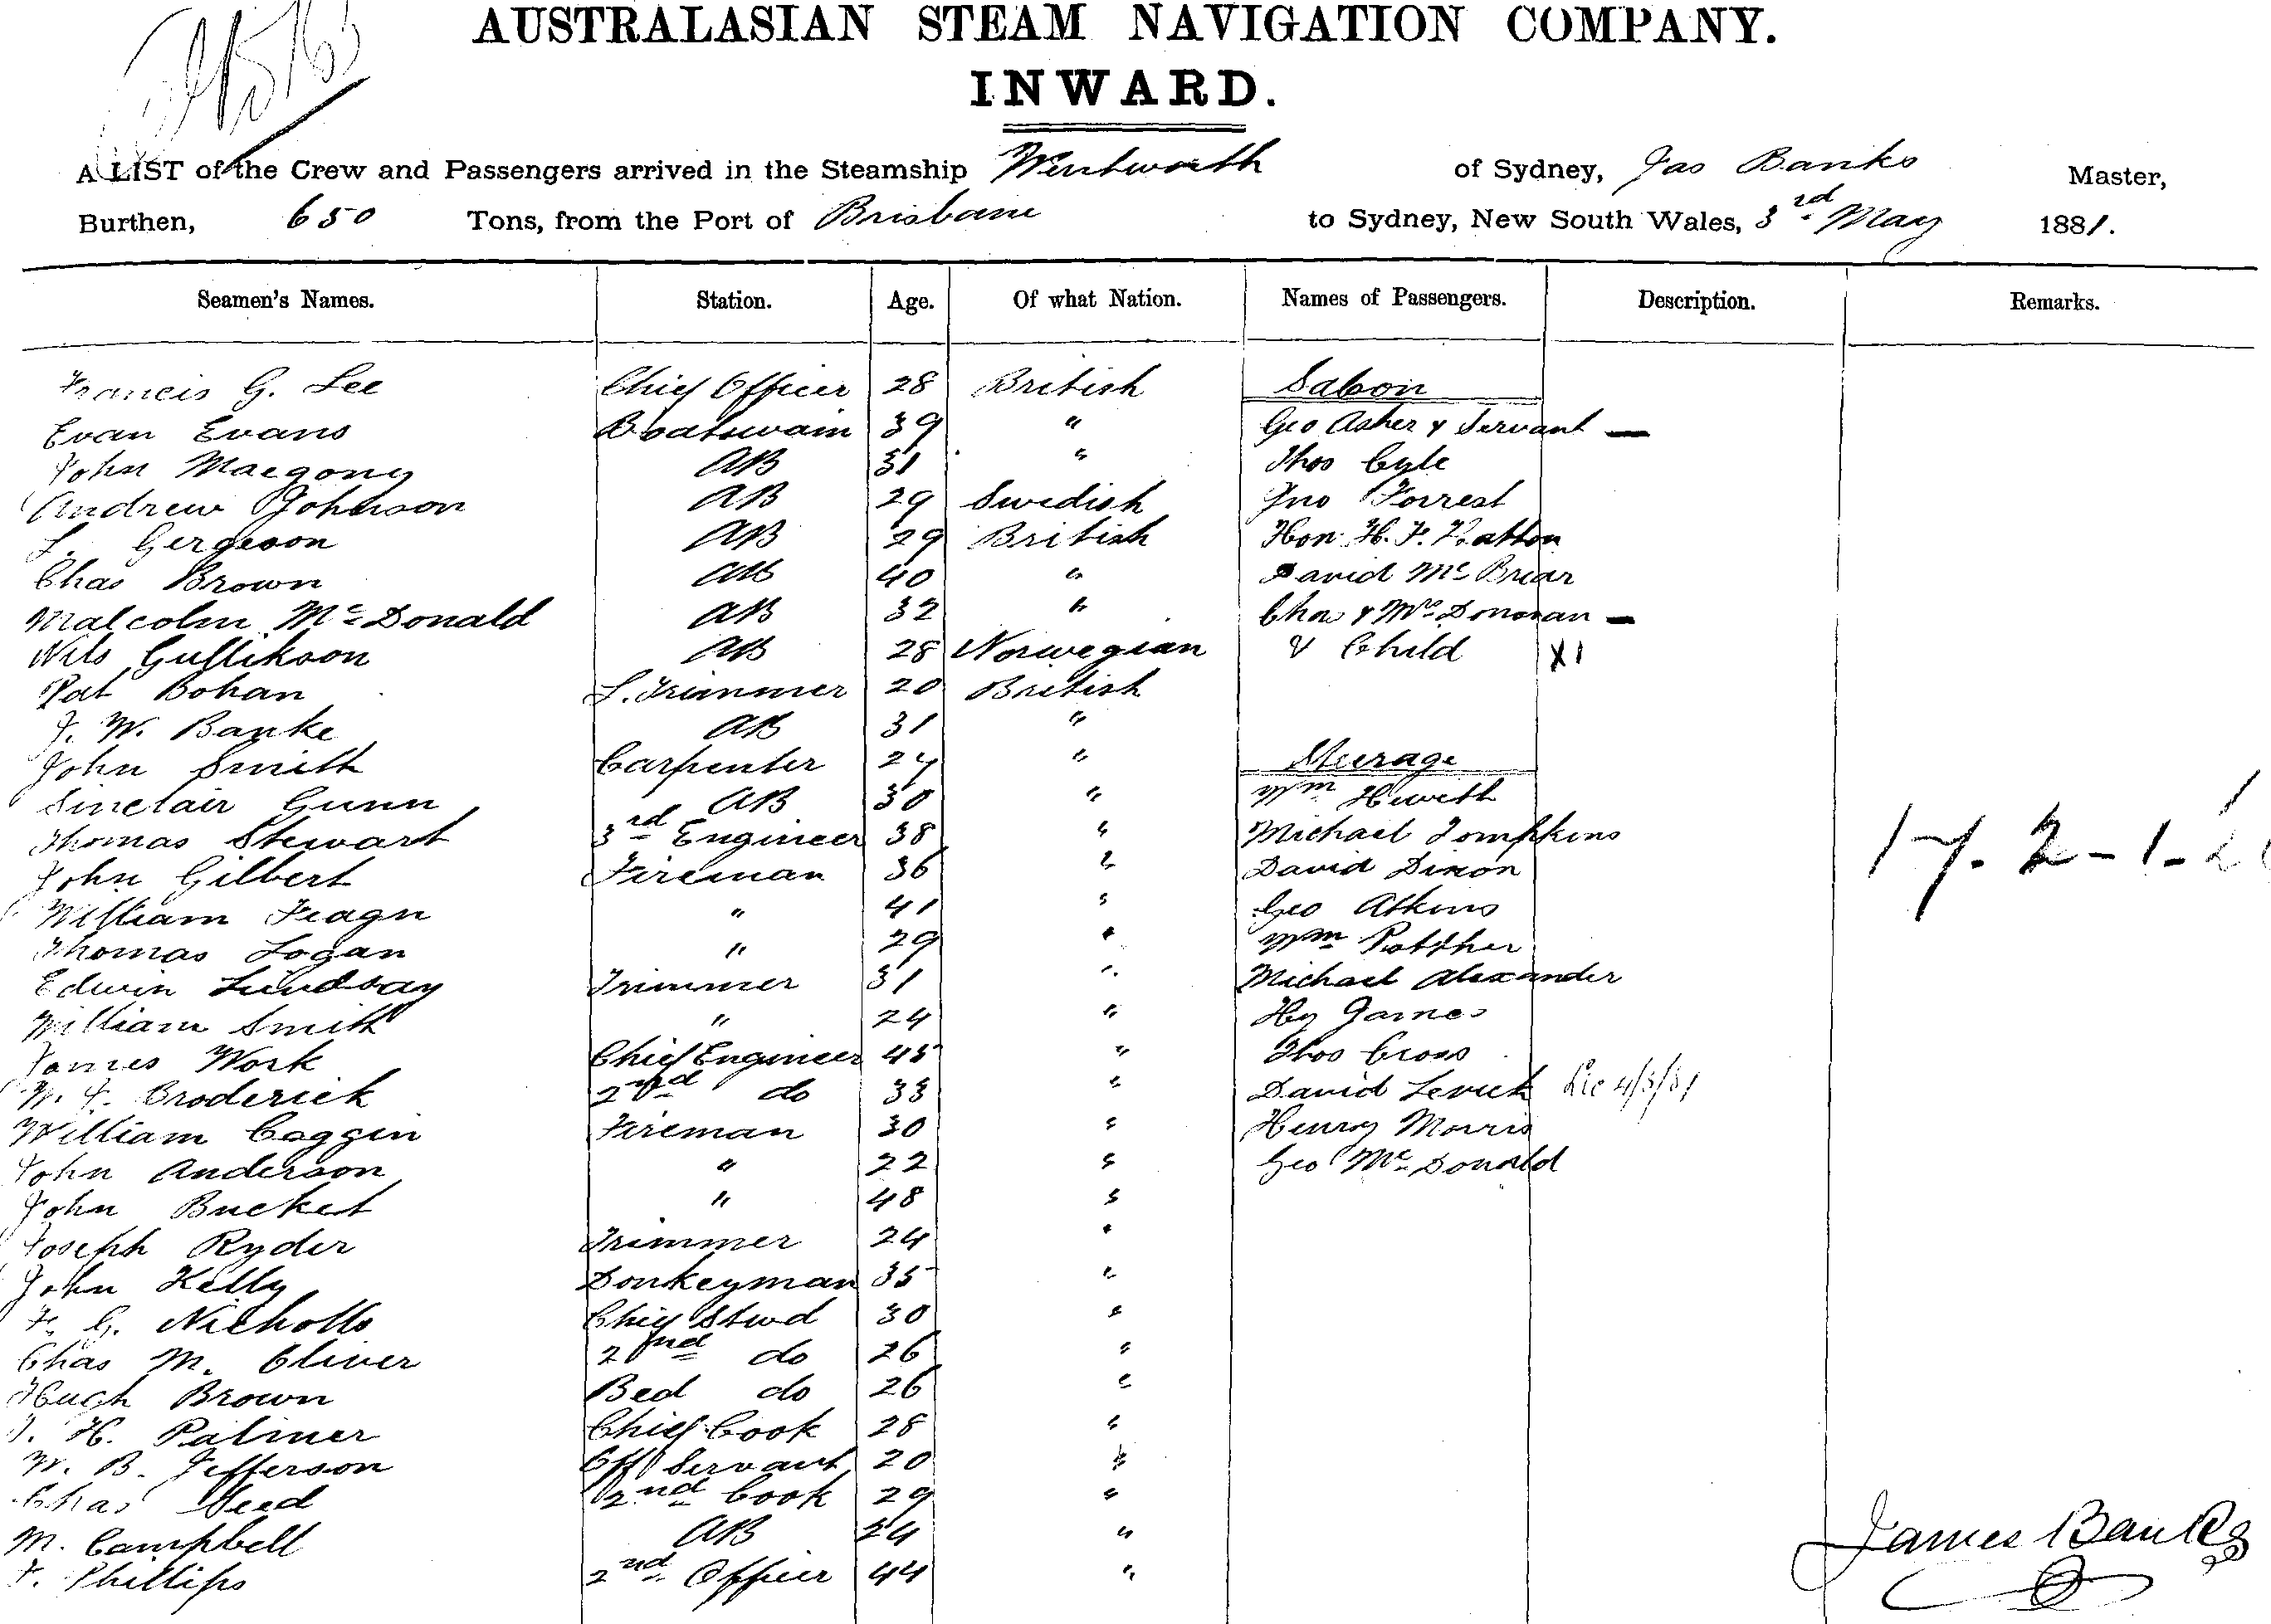 AUSTRALASIAN STEAM NAVIGATION COMPANY.
INWARD.
A LIST of the Crew and Passengers arrived in the Steamship Wentworth of Sydney, Jas Banks Master,
Burthen, 650 Tons, from the Port of Brisbane to Sydney, New South Wales, 3rd May 1881.
Seamen's Names. Station. Age. Of what Nation. Names of Passengers. Description. Remarks.
Francis G. Lee Chief Officer 28 British Saloon
Evan Evans Boatswain 39 " Geo Asher & Servant —
John Macgony AB 31 " Thos Cyle
Andrew Johnson AB 29 Swedish Jno Forrest
L. Gergeson AB 29 British Hon H. F.
Chas Brown AB 40 " David McBriar
Malcolm McDonald AB 32 " Chas & Mrs Donovan —
Nils Gullikson AB 28 Norwegian & Child X1
Pat Bohan L. Trimmer 20 British
J. W. Banke AB 31 "
John Smith Carpenter 24 " Steerage
Sinclair Gunn AB 30 " Wm Heweth
Thomas Stewart 3rd Engineer 38 " Michael Tompkins
John Gilbert Fireman 36 " David Dixon
William " 41 " Geo Atkins
Thomas Logan " 29 " Wm
Edwin Lindsay Trimmer 31 " Michael Alexander
William Smith " 24 " Hy James
James Work Chief Engineer 45 " Thos Cross
W. F. Broderick 2nd do 33 " David Levick 4/5/81
William Coggin Fireman 30 " Henry Morris
John Anderson " 22 " Geo McDonald
John Bucket " 48 "
Joseph Ryder Trimmer 24 "
John Kelly Donkeyman 35 "
F. G. Nicholls Chief Stwd 30 "
Chas M. Oliver 2nd do 26 "
Hugh Brown Bed do 26 "
J. H. Palmer Chief Cook 28 "
W. B. Jefferson Off Servant 20 "
Chas Seed 2nd Cook 29 "
M. Campbell AB 24 "
F. Phillips 2nd Officer 44 "
17. 2-1-
James Banks